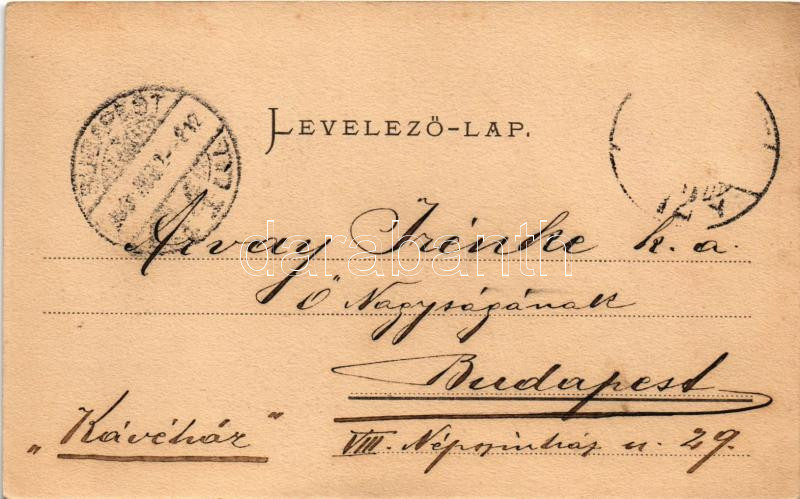 LEVELEZŐ-LAP.
BUDAPEST
Árvay Irénke k. a.
darabanth
Ő Nagyságának
Budapest
„Kávéház"
VIII. Népszinház u. 29.